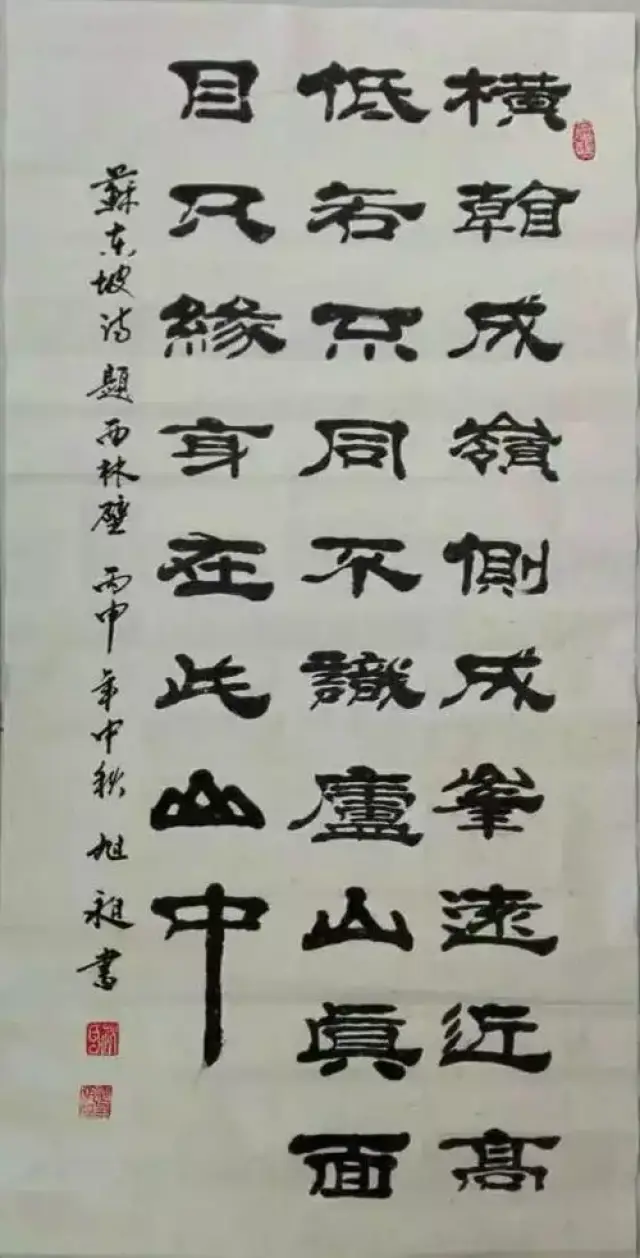 橫看成嶺側成峯遠近高
低各不同不識廬山眞面
目只緣身在此山中
蘇東坡诗題西林壁 丙申年中秋 旭昶書